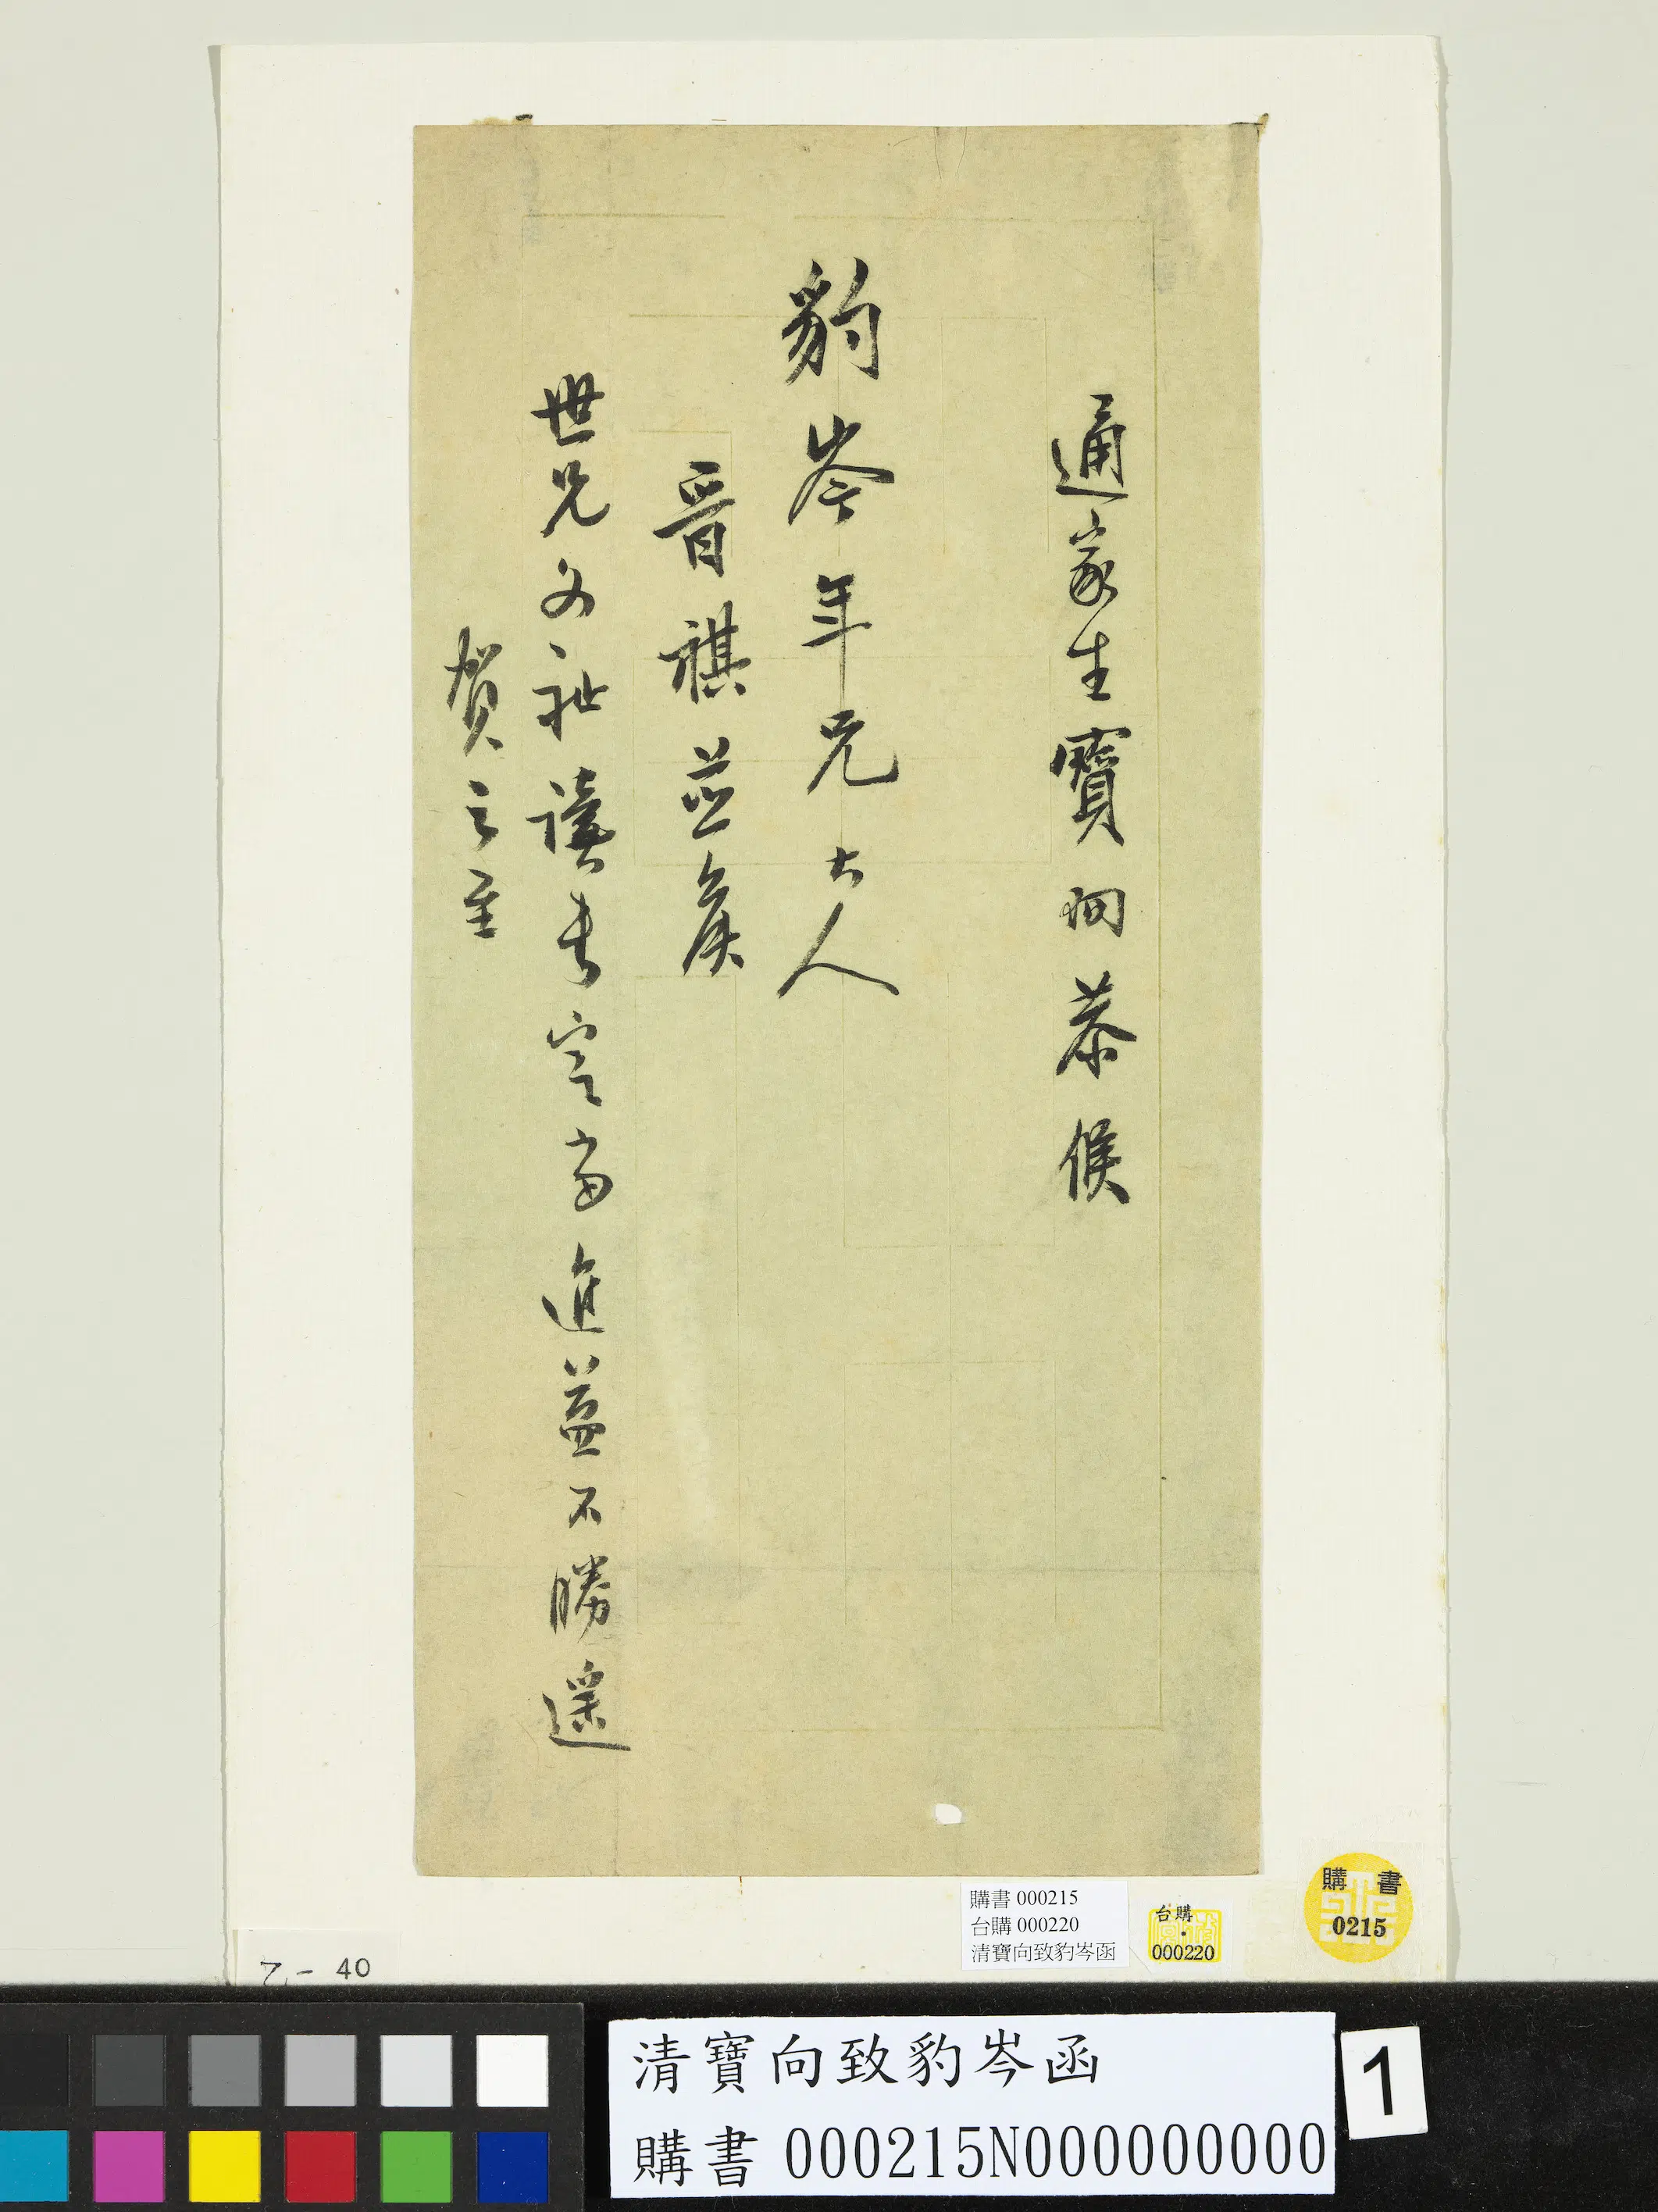 通家生寶珣恭候
豹岑年兄大人
晉祺並候
世兄文祉讀書定當進益不勝遙
賀之至
乙-40
購書 000215
台購 000220
清寶向致豹岑函
台購
000220
購書
0215
清寶向致豹岑函
購書 000215N000000000
1